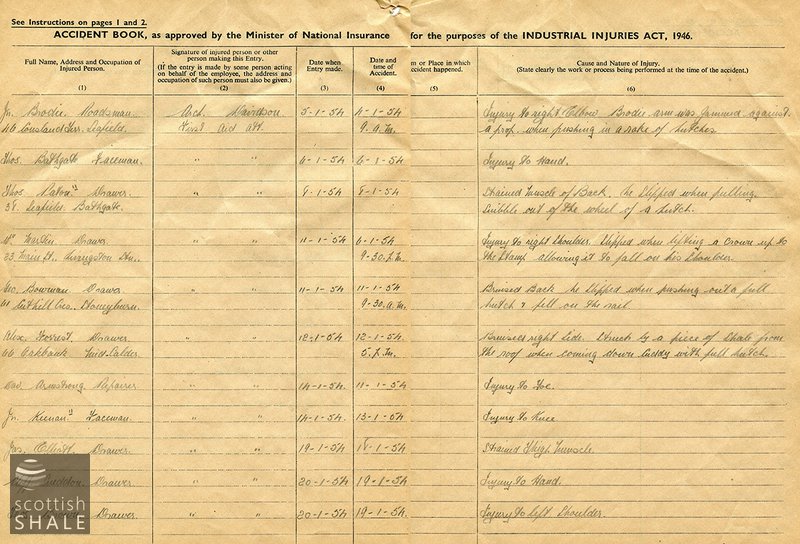 See Instructions on pages 1 and 2.
ACCIDENT BOOK, as approved by the Minister of National Insurance for the purposes of the INDUSTRIAL INJURIES ACT, 1946.
Full Name, Address and Occupation of Injured Person.
(1)
Signature of injured person or other person making this Entry.
(If the entry is made by some person acting on behalf of the employee, the address and occupation of such person must also be given.)
(2)
Date when Entry made.
(3)
Date and time of Accident.
(4)
m or Place in which ccident happened.
(5)
Cause and Nature of Injury.
(State clearly the work or process being performed at the time of the accident.)
(6)
Jn. Brodie Roadsman. Arch. Davidson 5-1-54 4-1-54 Injury to right Elbow Brodie arm was jammed against
46 Cousland Terr. Seafield. First Aid Att. 9. a.m. a prop. when pushing in a rake of hutches
Thos. Bathgate Faceman. " " 6-1-54 6-1-54 Injury to Hand.
Thos. Paton Drawer " " 8-1-54 8-1-54 Strained Muscle of Back. he slipped when pulling
38. Seafield. Bathgate. out of the wheel of a hutch.
Wm Martin Drawer " " 11-1-54 6-1-54 Injury to right Shoulder. Slipped when lifting a crown up to
23 Main St. Livingston Stn. 9-30. P.m. the allowing it to fall on his Shoulder.
Geo. Bowman Drawer " " 11-1-54 11-1-54 Bruised Back he slipped when pushing out a full
Cuthill Cres. Stoneyburn. 9-30. a.m. hutch & fell on the rail
Alex. Forrest Drawer " " 12-1-54 12-1-54 Bruised right side. Struck by a piece of Shale from
66 Oakbank Mid-Calder. 5. P.m. the roof when coming down cuddy with full hutch.
Dav. Armstrong Repairer " " 14-1-54 11-1-54 Injury to Toe.
Jn. Keenan Faceman. " " 14-1-54 13-1-54 Injury to Knee
Jas. Elliott Drawer. " " 19-1-54 18-1-54 Strained Thigh muscle.
Drawer. " " 20-1-54 19-1-54 Injury to Hand.
Drawer " " 20-1-54 19-1-54 Injury to left Shoulder.
scottish
SHALE